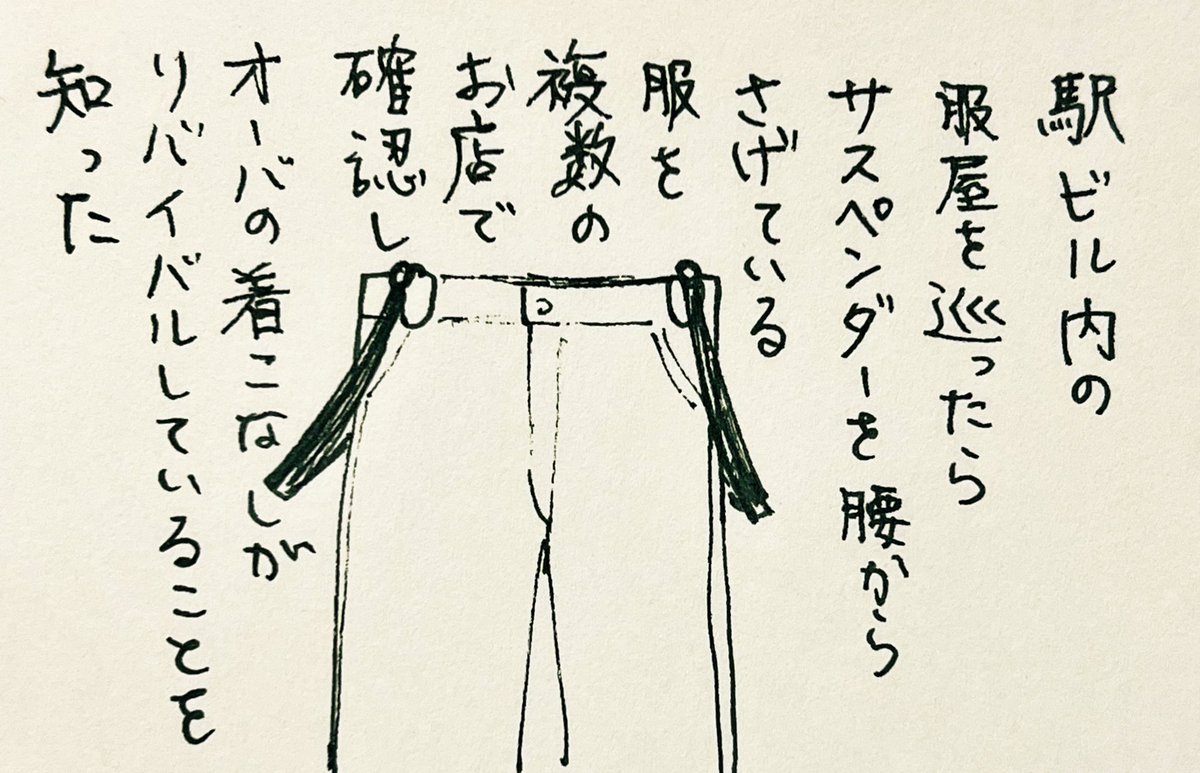 駅ビル内の
服屋を巡ったら
サスペンダーを腰から
さげている
服を
複数の
お店で
確認し
オーバの着こなしが
リバイバルしていることを
知った